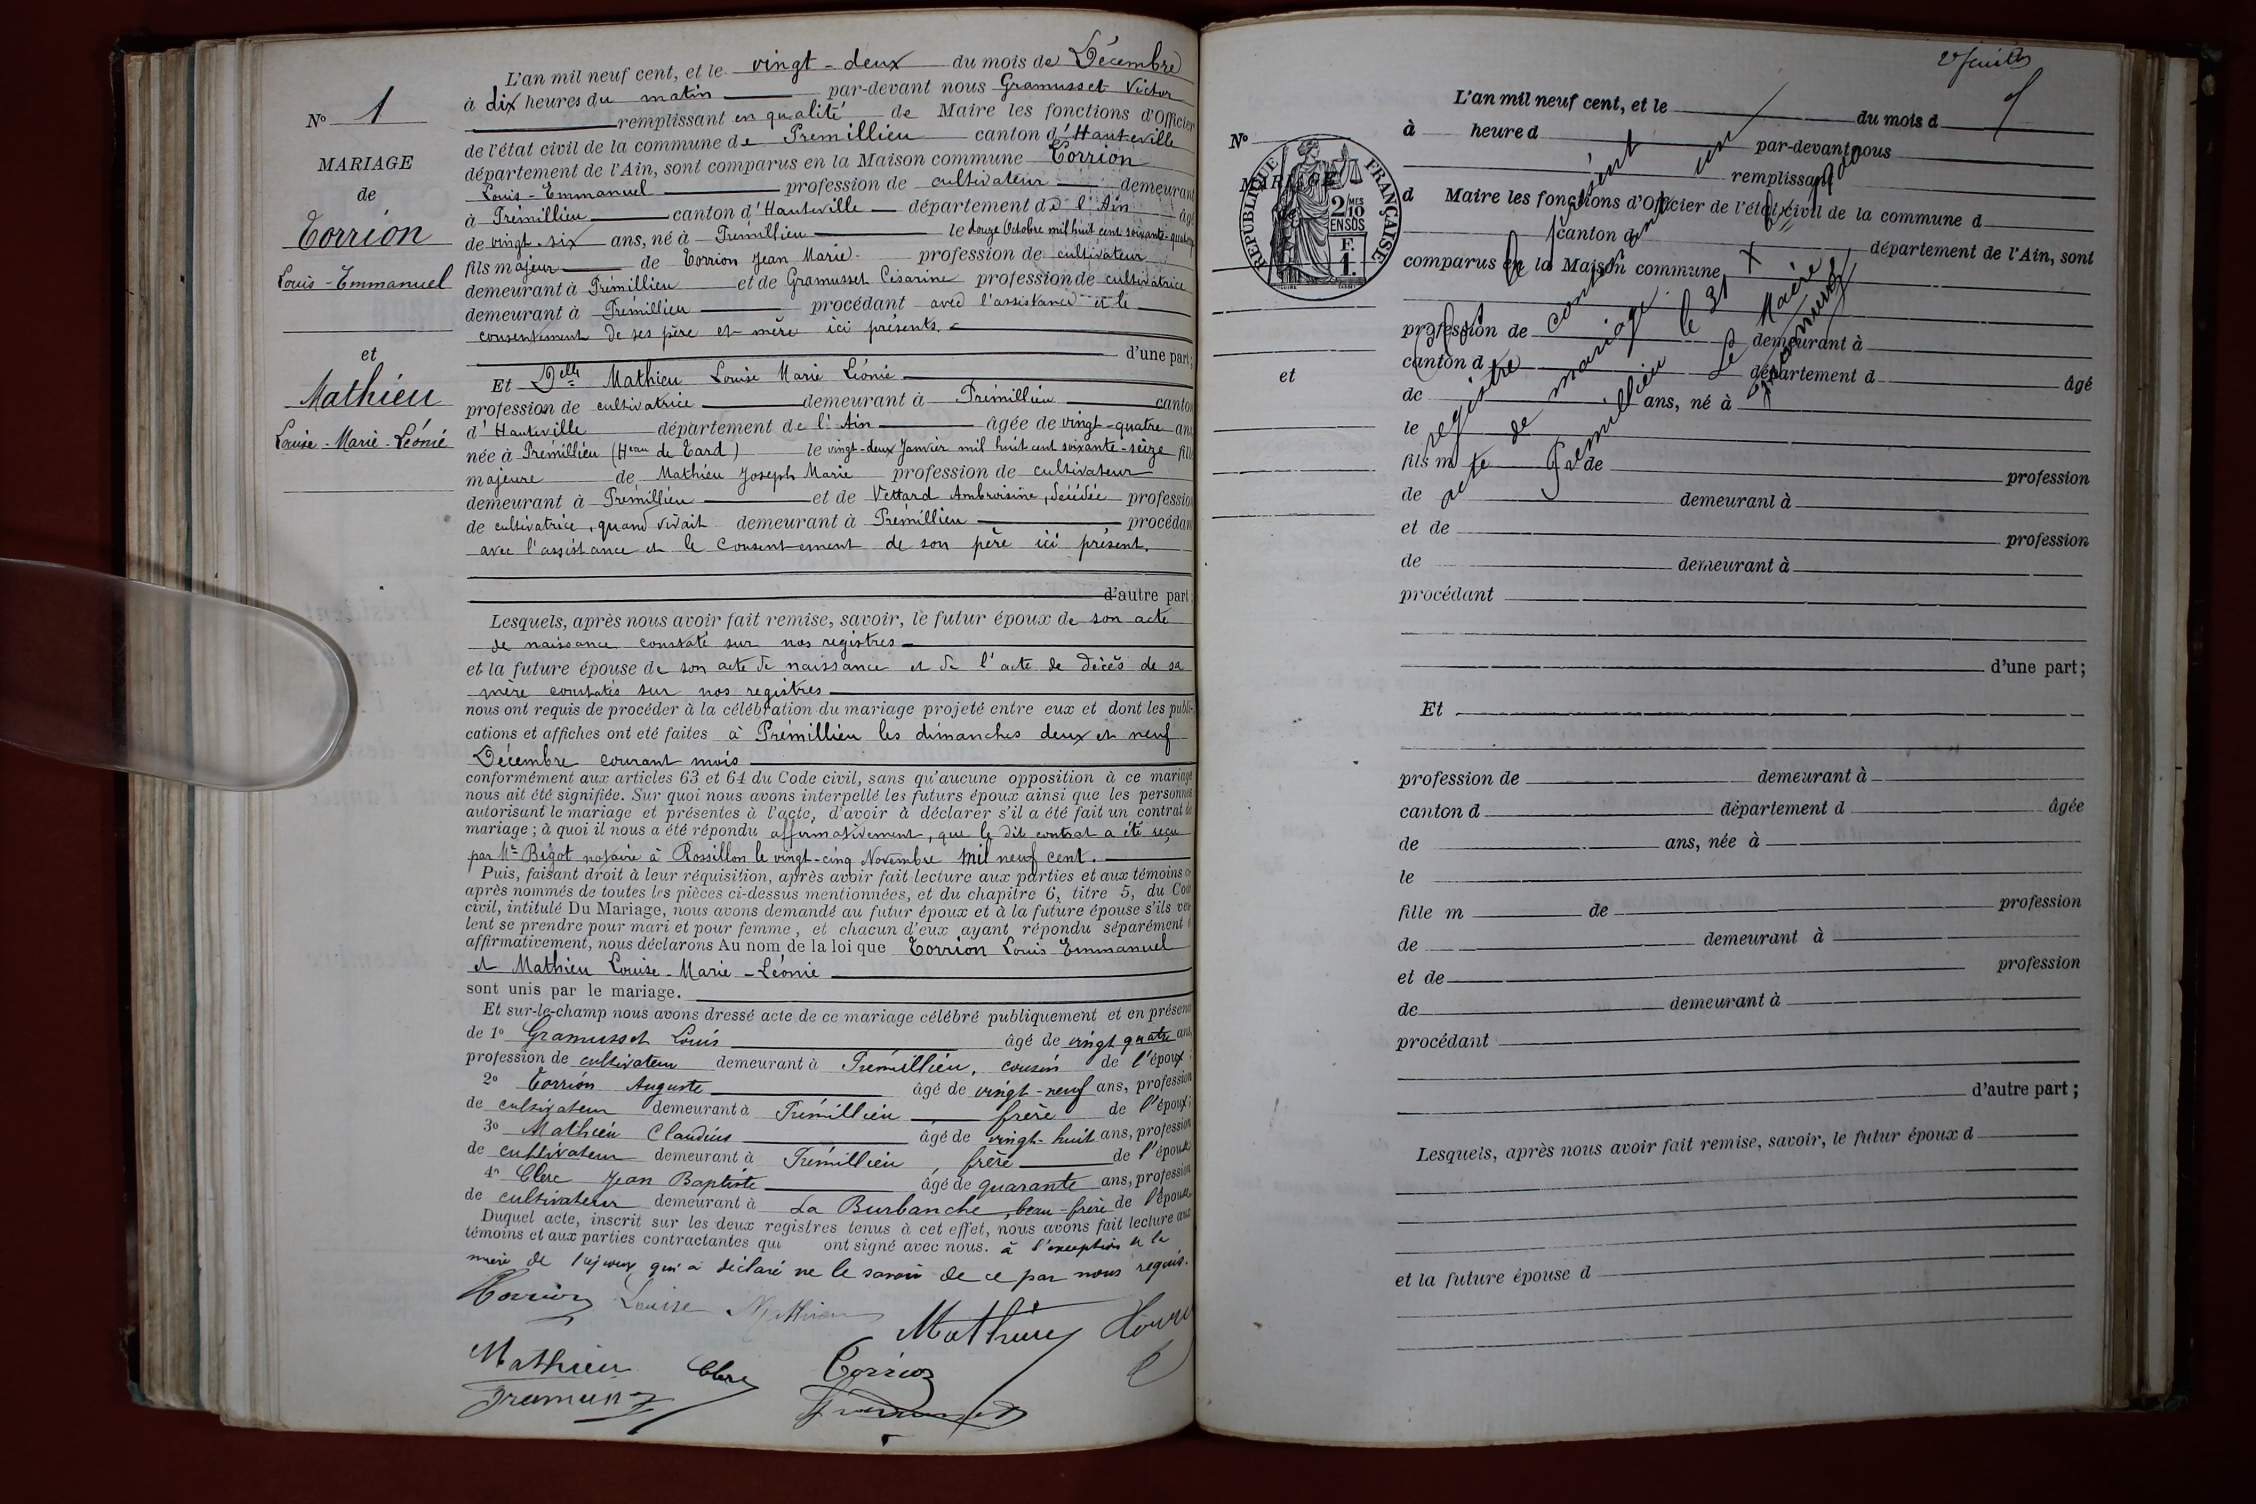 N° 1
MARIAGE
de
Torrion
Louis-Emmanuel
et
Mathieu
Louise-Marie-Léonie
L'an mil neuf cent, et le vingt-deux du mois de Décembre
à dix heures du matin par-devant nous Gramusset Victor
remplissant en qualité de Maire les fonctions d'Officier
de l'état civil de la commune de Prémillieu canton d'Hauteville
département de l'Ain, sont comparus en la Maison commune Torrion
Louis-Emmanuel profession de cultivateur demeurant
à Prémillieu canton d'Hauteville département de l'Ain âgé
de vingt-six ans, né à Prémillieu le douze Octobre mil huit cent soixante-quatorze
fils majeur de Torrion Jean Marie profession de cultivateur
demeurant à Prémillieu et de Gramusset Césarine profession de cultivatrice
demeurant à Prémillieu procédant avec l'assistance et le
consentement de ses père et mère ici présents.
d'une part;
Et Delle Mathieu Louise Marie Léonie
profession de cultivatrice demeurant à Prémillieu canton
d'Hauteville département de l'Ain âgée de vingt-quatre ans
née à Prémillieu (Heau de Tard) le vingt-deux Janvier mil huit cent soixante-seize fille
majeure de Mathieu Joseph Marie profession de cultivateur
demeurant à Prémillieu et de Vettard Ambroisine, décédée profession
de cultivatrice, quand vivait demeurant à Prémillieu procédant
avec l'assistance et le consentement de son père ici présent.
d'autre part;
Lesquels, après nous avoir fait remise, savoir, le futur époux de son acte
de naissance constaté sur nos registres
et la future épouse de son acte de naissance et de l'acte de décès de sa
mère constatés sur nos registres
nous ont requis de procéder à la célébration du mariage projeté entre eux et dont les publi-
cations et affiches ont été faites à Prémillieu les dimanches deux et neuf
Décembre courant mois
conformément aux articles 63 et 64 du Code civil, sans qu'aucune opposition à ce mariage
nous ait été signifiée. Sur quoi nous avons interpellé les futurs époux ainsi que les personnes
autorisant le mariage et présentes à l'acte, d'avoir à déclarer s'il a été fait un contrat de
mariage; à quoi il nous a été répondu affirmativement, que le dit contrat a été reçu
par Me Bigot notaire à Rossillon le vingt-cinq Novembre mil neuf cent.
Puis, faisant droit à leur réquisition, après avoir fait lecture aux parties et aux témoins ci-
après nommés de toutes les pièces ci-dessus mentionnées, et du chapitre 6, titre 5, du Code
civil, intitulé Du Mariage, nous avons demandé au futur époux et à la future épouse s'ils veu-
lent se prendre pour mari et pour femme, et chacun d'eux ayant répondu séparément
affirmativement, nous déclarons Au nom de la loi que Torrion Louis-Emmanuel
et Mathieu Louise-Marie-Léonie
sont unis par le mariage.
Et sur-le-champ nous avons dressé acte de ce mariage célébré publiquement et en présence
de 1° Gramusset Louis âgé de vingt quatre ans,
profession de cultivateur demeurant à Prémillieu, cousin de l'époux;
2° Torrion Auguste âgé de vingt-neuf ans, profession
de cultivateur demeurant à Prémillieu frère de l'époux;
3° Mathieu Claudius âgé de vingt-huit ans, profession
de cultivateur demeurant à Prémillieu, frère de l'épouse
4° Clerc Jean Baptiste âgé de quarante ans, profession
de cultivateur demeurant à La Burbanche, beau-frère de l'épouse
Duquel acte, inscrit sur les deux registres tenus à cet effet, nous avons fait lecture aux
témoins et aux parties contractantes qui ont signé avec nous. à l'exception de la
mère de l'époux qui a déclaré ne le savoir de ce par nous requis.
Torrion Louise Mathieu Mathieu
Mathieu Clerc Torrion
Gramusset Gramusset
2e feuillet
N°
RÉPUBLIQUE FRANÇAISE
2 MES
2/10
EN SUS
F.
1.
MARIAGE
et
L'an mil neuf cent, et le du mois d
à heure d par-devant nous
remplissant
d Maire les fonctions d'Officier de l'état civil de la commune d
canton d département de l'Ain, sont
comparus en la Maison commune
profession de demeurant à
canton d département d âgé
de ans, né à
le
fils m de profession
de demeurant à
et de profession
de demeurant à
procédant
d'une part;
Et
profession de demeurant à
canton d département d âgée
de ans, née à
le
fille m de profession
de demeurant à
et de profession
de demeurant à
procédant
d'autre part;
Lesquels, après nous avoir fait remise, savoir, le futur époux d
et la future épouse d
Clos le présent
registre contenant un
acte de mariage le 31 Xbre 1900
Prémillieu Le Maire
Gramusset